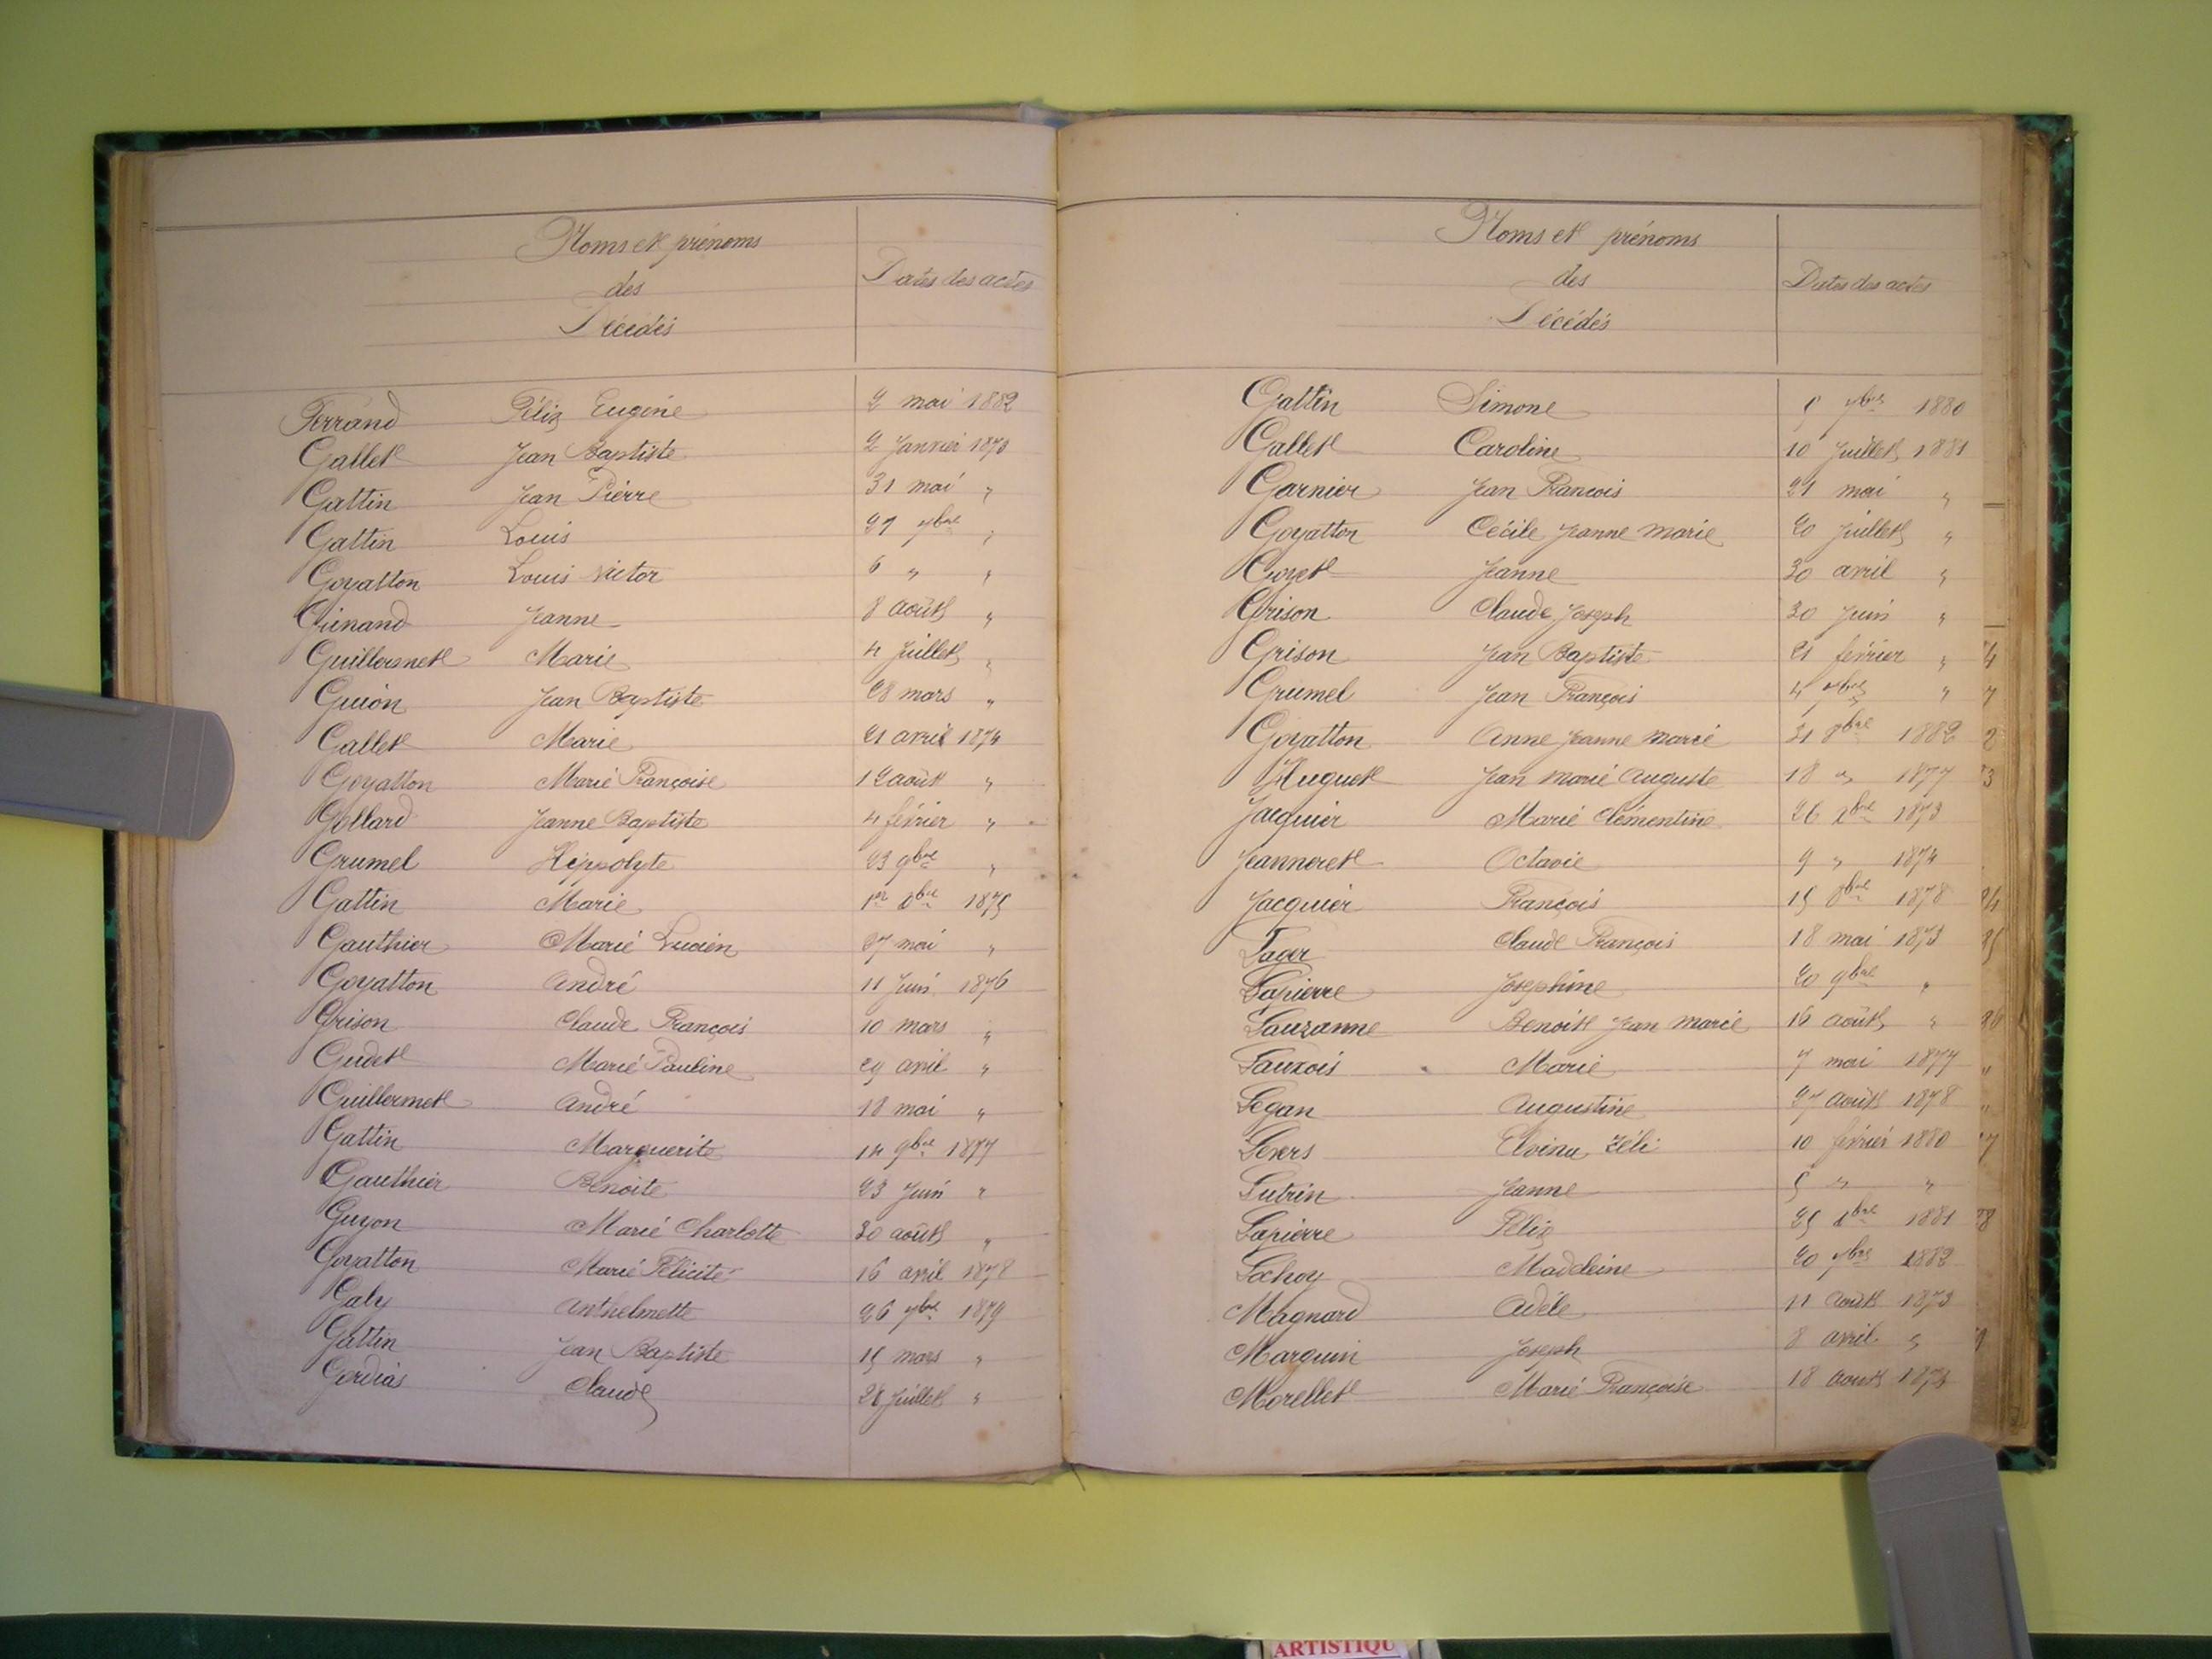 Noms et prénoms
des
Décédés
Dates des actes
Ferrand Félix Eugène 2 mai 1882
Gallet Jean Baptiste 2 Janvier 1873
Gattin Jean Pierre 31 mai "
Gattin Louis 27 7bre "
Goyatton Louis Victor 6 " "
Guinand Jeanne 8 août "
Guillermet Marie 4 Juillet "
Guion Jean Baptiste 28 mars "
Gallet Marie 21 avril 1874
Goyatton Marie Françoise 12 août "
Gollard Jeanne Baptiste 4 février "
Grumel Hippolyte 23 9bre "
Gattin Marie 1er Xbre 1875
Gauthier Marie Lucien 27 mai "
Goyatton André 11 Juin 1876
Grison Claude François 10 mars "
Gudet Marie Pauline 29 avril "
Guillermet André 18 mai "
Gattin Marguerite 14 9bre 1877
Gauthier Benoite 23 Juin "
Guyon Marie Charlotte 30 août "
Goyatton Marie Félicité 16 avril 1878
Galy Anthelmette 26 7bre 1879
Gattin Jean Baptiste 15 mars "
Gerdias Claude 28 Juillet "
Noms et prénoms
des
Décédés
Dates des actes
Gattin Simone 5 7bre 1880
Gallet Caroline 10 Juillet 1881
Garnier Jean Francois 21 mai "
Goyatton Cécile Jeanne Marie 20 Juillet "
Goyet Jeanne 30 avril "
Grison Claude Joseph 30 Juin "
Grison Jean Baptiste 21 février "
Grumel Jean François 4 7bre "
Goyatton Anne Jeanne Marie 31 8bre 1882
Huguet Jean Marie Auguste 18 " 1877
Jacquier Marie Clémentine 26 Xbre 1873
Jeanneret Octavie 9 " 1874
Jacquier François 15 8bre 1878
Lager Claude François 18 mai 1873
Lapierre Joséphine 20 9bre "
Lauzanne Benoit Jean Marie 16 août "
Lauxois Marie 7 mai 1877
Legan Augustine 27 Août 1878
Levers Elvina Zéli 10 février 1880
Lutrin Jeanne 5 " "
Lapierre Félix 25 Xbre 1881
Lochoy Madeleine 20 7bre 1882
Magnard Adèle 11 Août 1873
Marquin Joseph 8 avril "
Morellet Marie Françoise 18 août 1874
ARTISTIQU